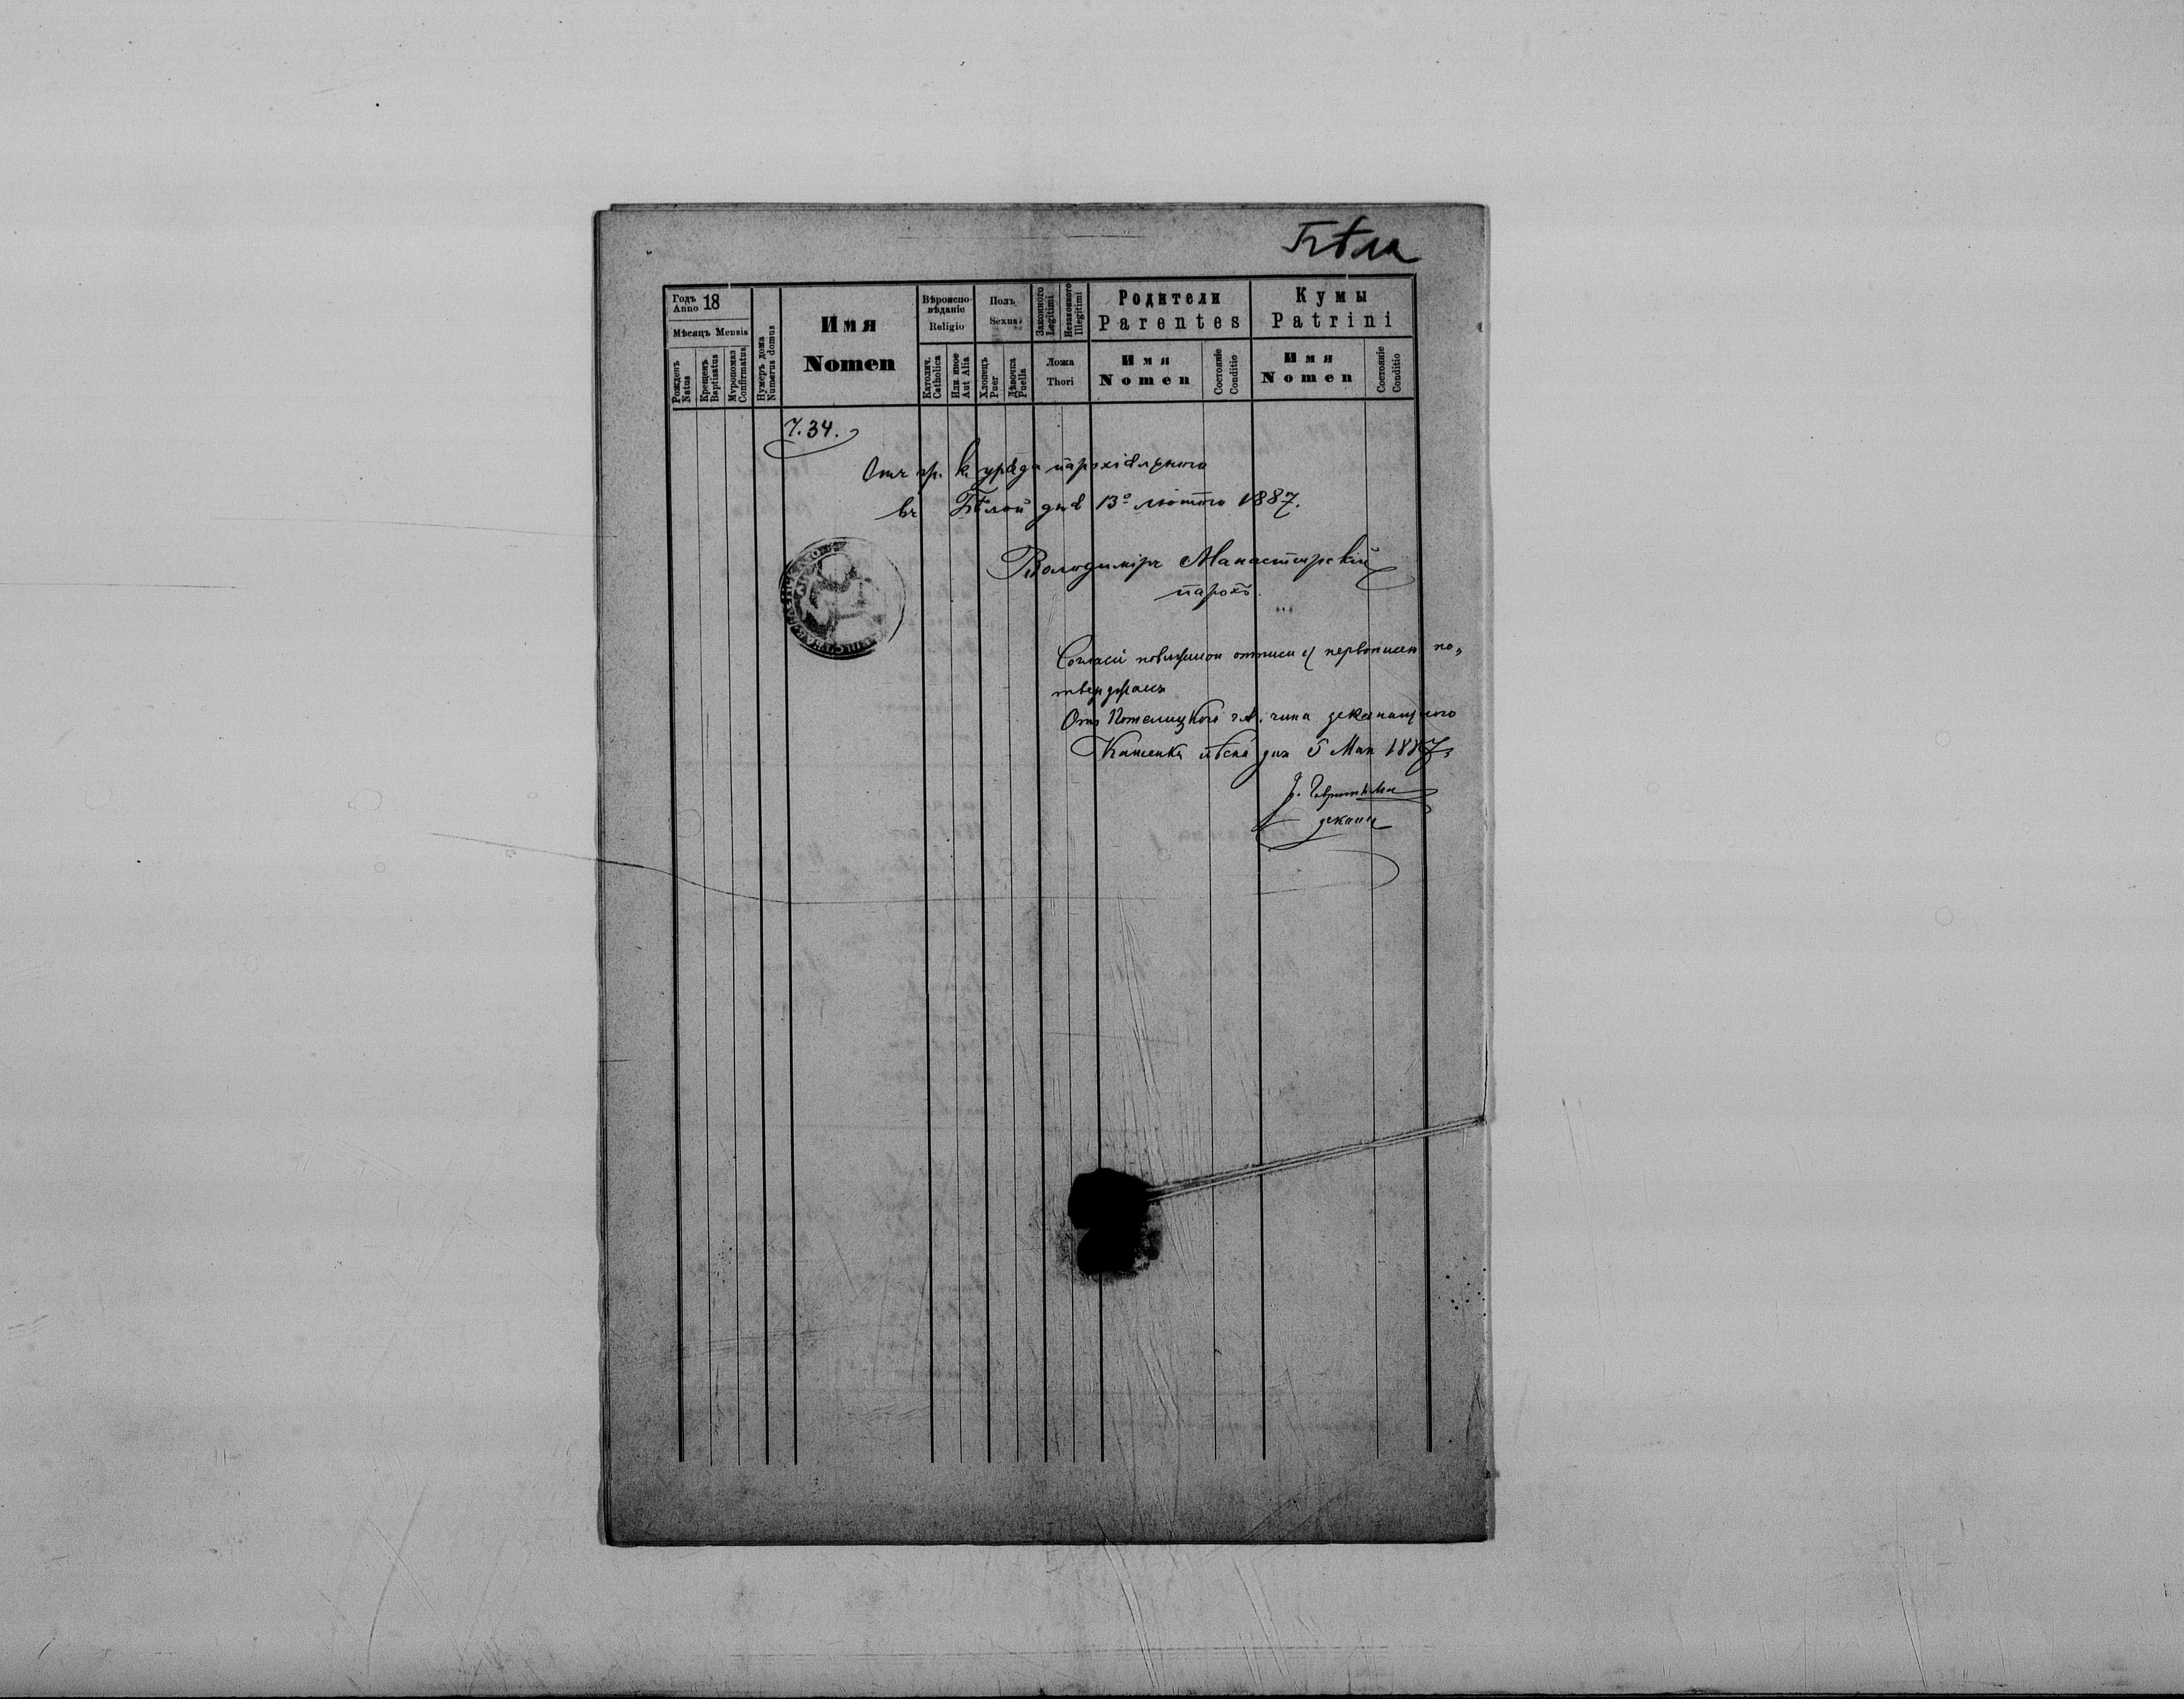 Бѣла
Годъ Anno 18
Мѣсяцъ Mensis
Рожденъ Natus
Крещенъ Baptisatus
Мѵропомаз Confirmatus
Нумеръ дома Numerus domus
Имя
Nomen
Вѣроиспо-
вѣданіе
Religio
Католич. Catholica
Или иное Aut Alia
Полъ
Sexus
Хлопецъ Puer
Дѣвочка Puella
Законного Legitimi
Незаконного Illegitimi
Ложа
Thori
Родители
Parentes
Имя
Nomen
Состояніе
Conditio
Кумы
Patrini
Имя
Nomen
Состояніе
Conditio
Ч. 34.
Отъ гр. к. уряда парохіяльного
въ Бѣлой дня 13º лютого 1887.
Володимѣръ Манастирскій
парохъ.
отписи съ первописею по„
тверджаесь
Отъ деканального
Каменка лѣсна дня 5 Мая 1887
деканъ